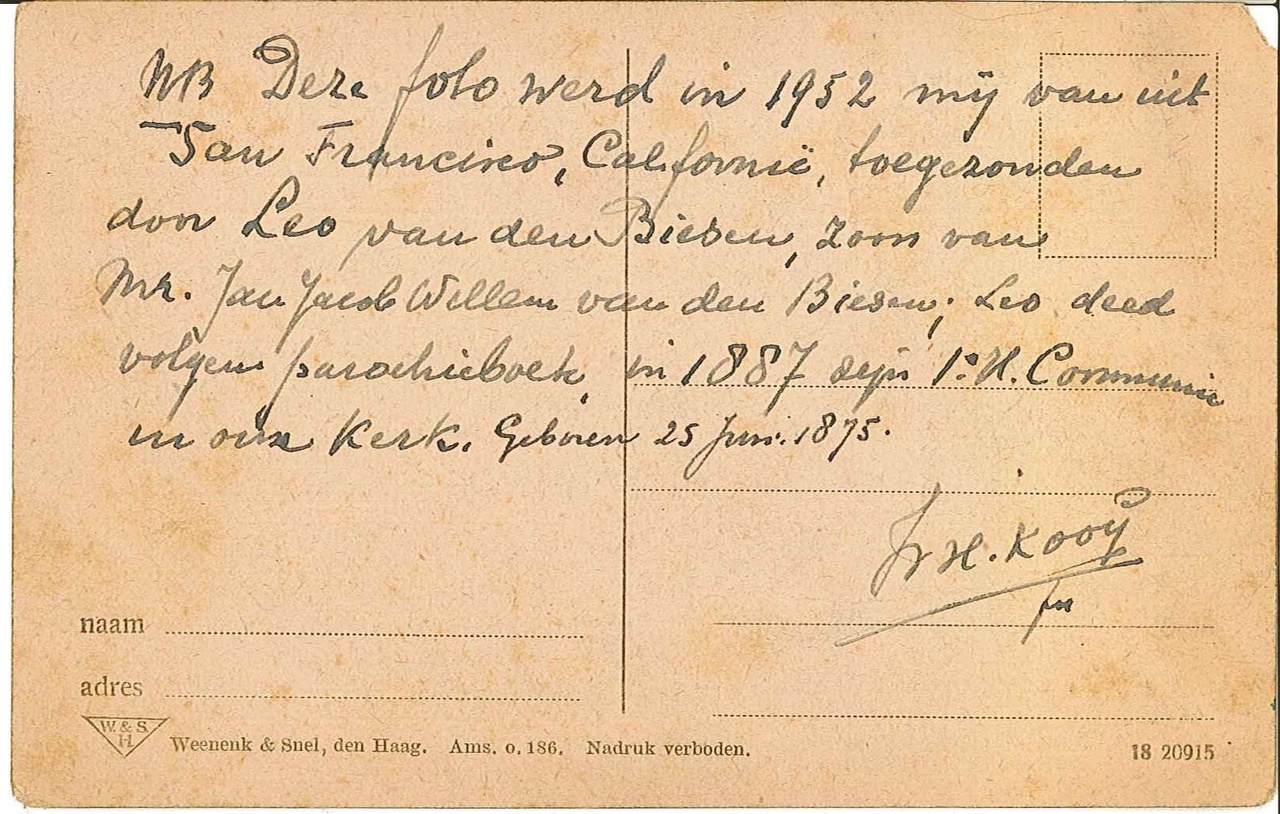 NB Deze foto werd in 1952 mij van uit
San Francisco, Californië, toegezonden
door Leo van den Biesen, zoon van
Mr. Jan Jacob Willem van den Biesen; Leo deed
volgens parochieboek, in 1887 zijn 1e H. Communie
in onze Kerk. Geboren 25 Juni 1875.
H. Kooÿ
naam
adres
W. & S.
H
Weenenk & Snel, den Haag. Ams. o. 186. Nadruk verboden.
18 20915